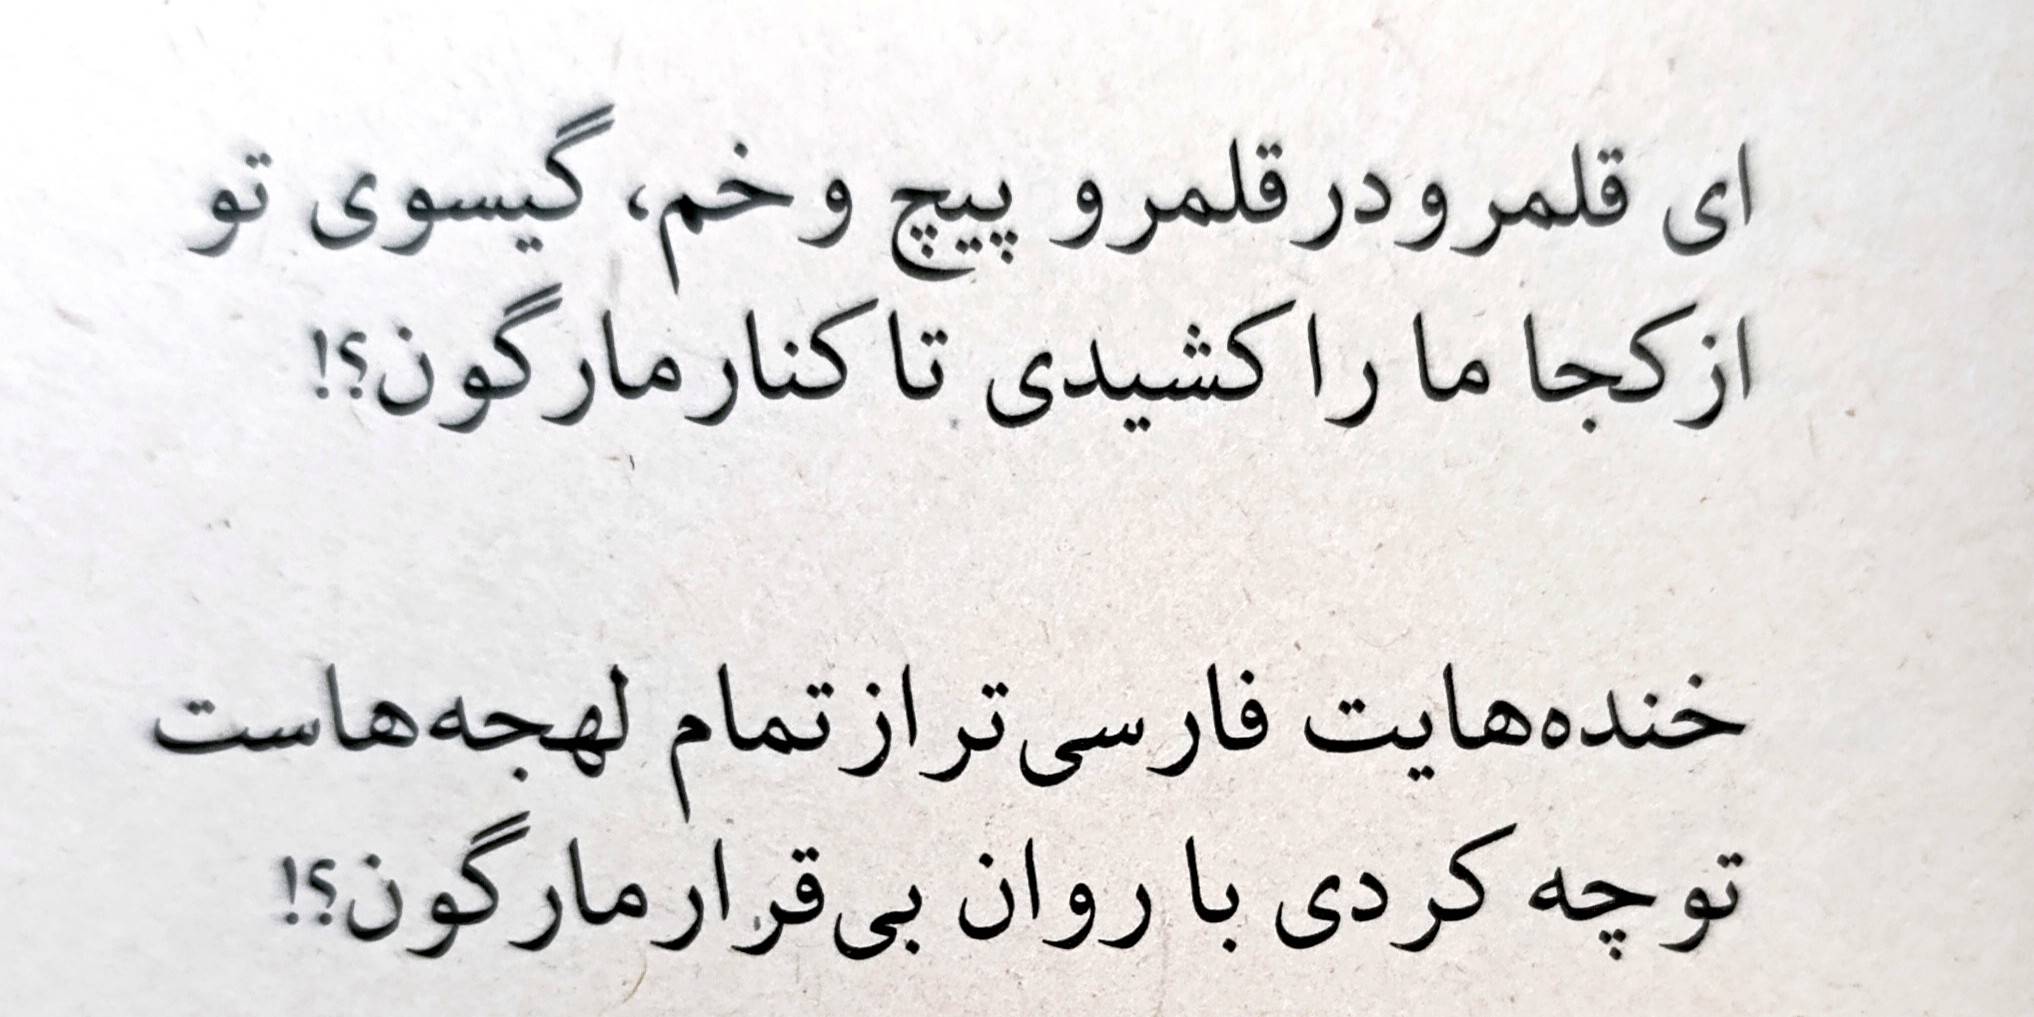 ای قلمرو در قلمرو پیچ و خم، گیسوی تو
از کجا ما را کشیدی تا کنار مارگون؟!
خنده‌هایت فارسی‌تر از تمام لهجه‌هاست
تو چه کردی با روان بی‌قرار مارگون؟!